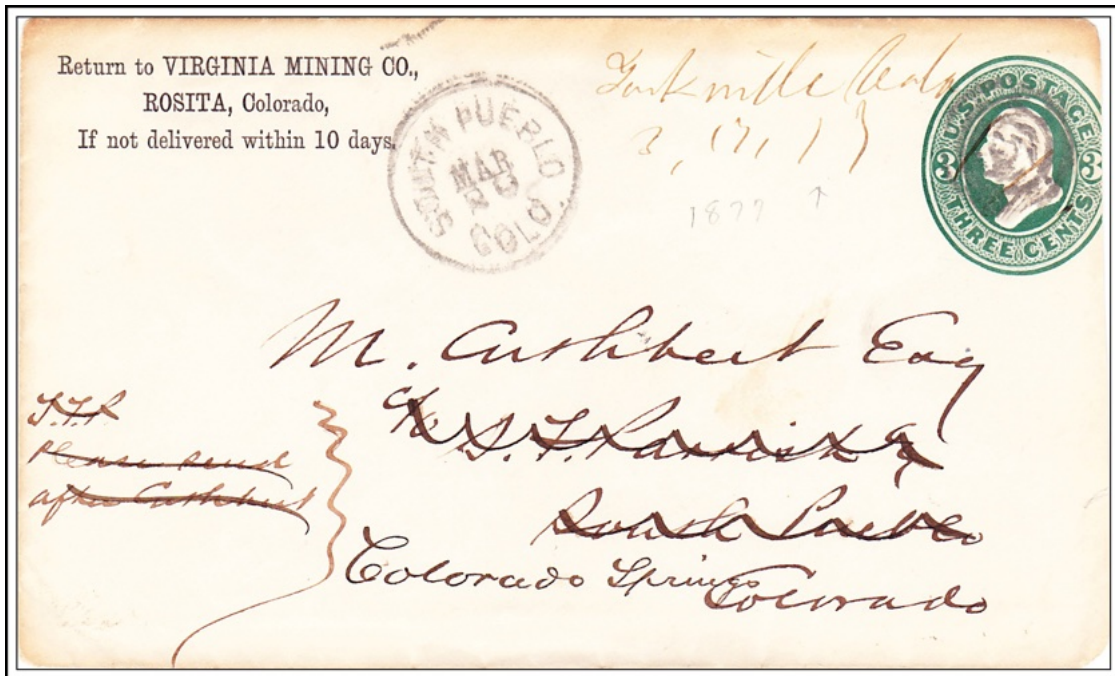 Return to VIRGINIA MINING CO.,
ROSITA, Colorado,
If not delivered within 10 days.
SOUTH PUEBLO
MAR
20
COLO.
Yorkville Colo
3, 17, 77
1877
U.S. POSTAGE
3 3
THREE CENTS
M. Cuthbert Esq
c/o S. F. Parrish Esq
South Pueblo
Colorado Springs
Colorado
Please send
after Cuthbert